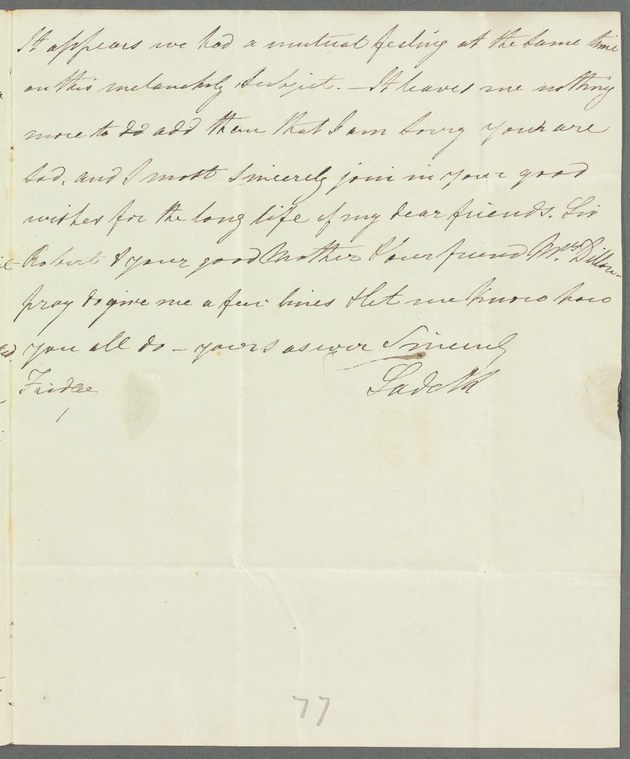 It appears we had a mutual feeling at the same time
on this melancholy subject. — It leaves me nothing
more to do add than that I am sorry you are
sad, and I most sincerely join in your good
wishes for the long life of my dear friends. Sir
Robert & your good Mother & our friend Mrs Dillon
pray do give me a few lines & let me know how
you all do — yours as ever Sincerely
Friday
77